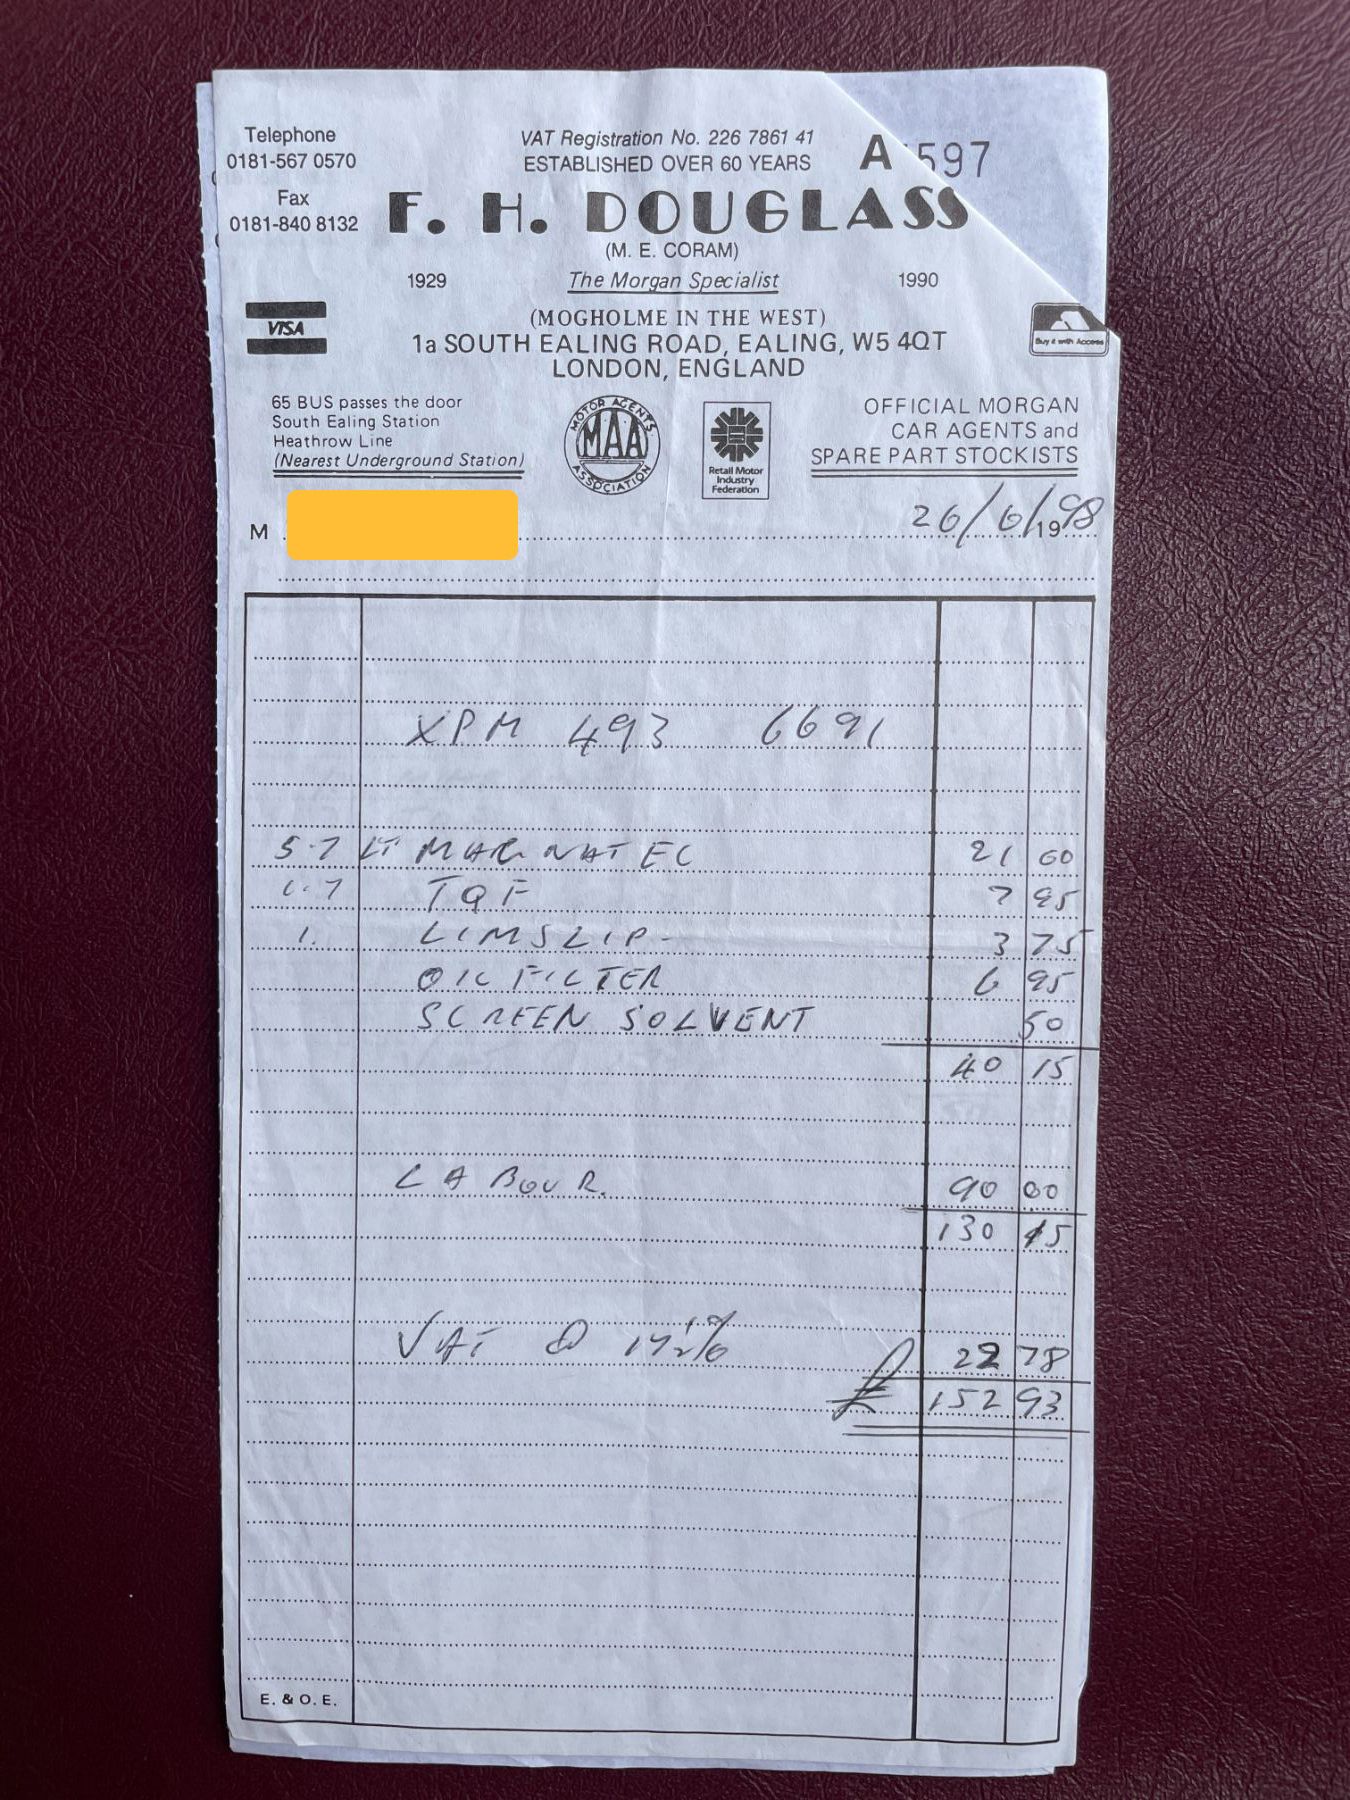 Telephone
0181-567 0570
Fax
0181-840 8132
VAT Registration No. 226 7861 41
ESTABLISHED OVER 60 YEARS
A 597
F. H. DOUGLASS
(M. E. CORAM)
1929 The Morgan Specialist 1990
(MOGHOLME IN THE WEST)
1a SOUTH EALING ROAD, EALING, W5 4QT
LONDON, ENGLAND
VISA
Buy it with Access
65 BUS passes the door
South Ealing Station
Heathrow Line
(Nearest Underground Station)
MOTOR AGENTS
MAA
ASSOCIATION
Retail Motor
Industry
Federation
OFFICIAL MORGAN
CAR AGENTS and
SPARE PART STOCKISTS
M
26/6/1998
XPM 493 6691
5.7 LT MAGNATEC 21 60
1.7 TQF 7 95
1. LIMSLIP- 3 75
OIL FILTER 6 95
SCREEN SOLVENT 50
40 15
LABOUR. 90 00
130 15
VAT @ 17½% 22 78
£ 152 93
E. & O. E.